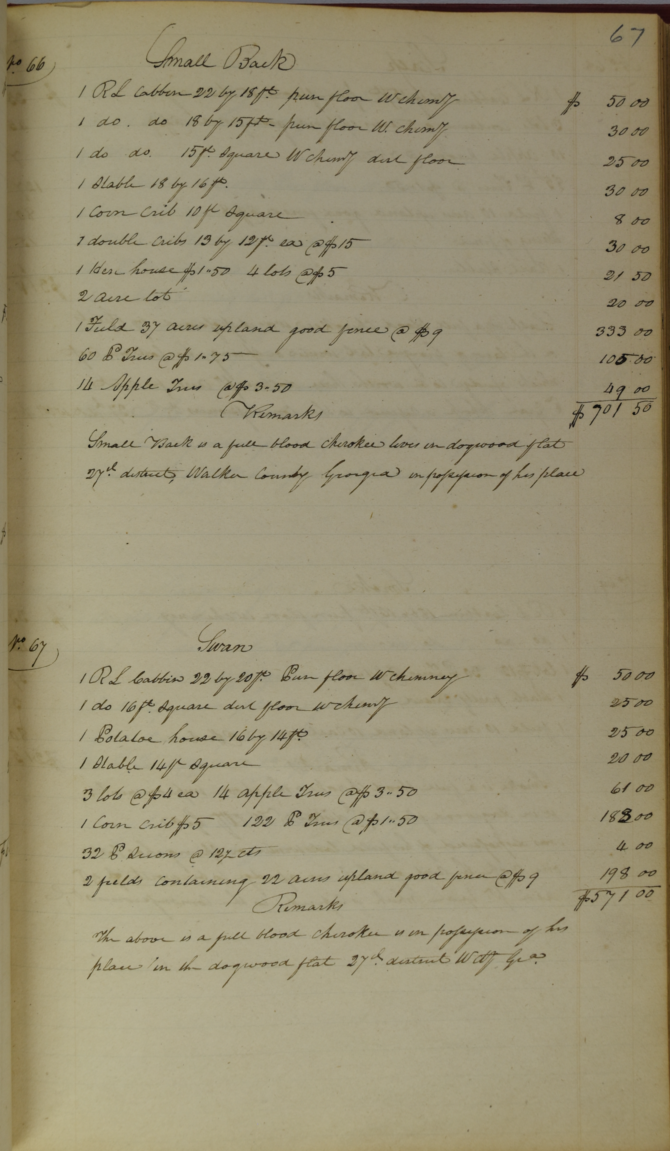 67
No. 66
Small Back
1 RL Cabbin 22 by 18 ft. pun floor W chimy $ 50 00
1 do. do 18 by 15 ft. pun floor W chimy 30 00
1 do do. 15 ft. Square W chimy dirt floor 25 00
1 Stable 18 by 16 ft. 30 00
1 Corn Crib 10 ft Square 8 00
double Cribs 13 by 12 ft. ea @ $15 30 00
1 Hen house $1-50 4 lots @ $5 21 50
2 acre lot 20 00
1 Field 37 acres upland good fence @ $9 333 00
60 P Trees @ $1-75 105 00
14 Apple Trees @ $3-50 49 00
Remarks $701 50
Small Back is a full blood Cherokee lives in dogwood flat
27th district, Walker County Georgia in possession of his place
No. 67
Swan
1 RL Cabbin 22 by 20 ft. Pun floor W chimney $ 50 00
1 do 16 ft. Square dirt floor W chimy 25 00
1 Potatoe house 16 by 14 ft. 25 00
1 Stable 14 ft Square 20 00
3 lots @ $4 ea 14 apple Trees @ $3-50 61 00
1 Corn Crib $5 122 P Trees @ $1-50 188 00
32 P Scions @ 12½ cts 4 00
2 fields containing 22 acres upland good fence @ $9 198 00
Remarks $571 00
The above is a full blood Cherokee is in possession of his
place in the dogwood flat 27th district W Cty Ga.